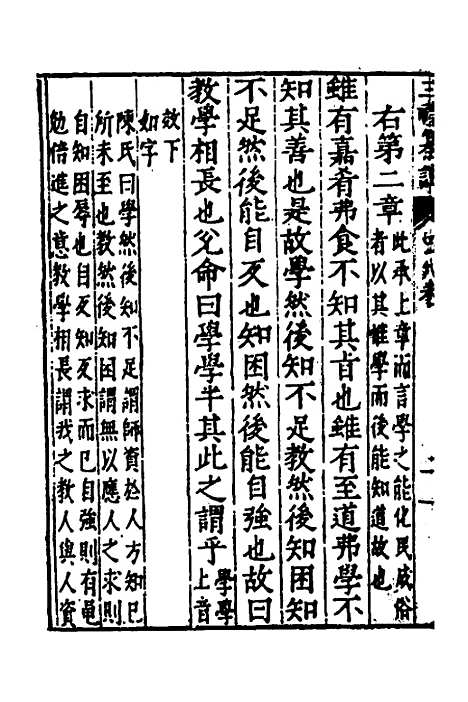 右第二章此承上章而言學之能化民成俗
者以其惟學而後能知道故也
雖有嘉肴弗食不知其旨也雖有至道弗學不
知其善也是故學然後知不足教然後知困知
不足然後能自反也知困然後能自強也故曰
教學相長也兊命曰學學半其此之謂乎學學
上音
效下
如字
陳氏曰學然後知不足謂師資於人方知已
所未至也教然後知困謂無以應人之求則
自知困辱也自反知反求而已自強則有黽
勉倍進之意教學相長謂我之教人與人資